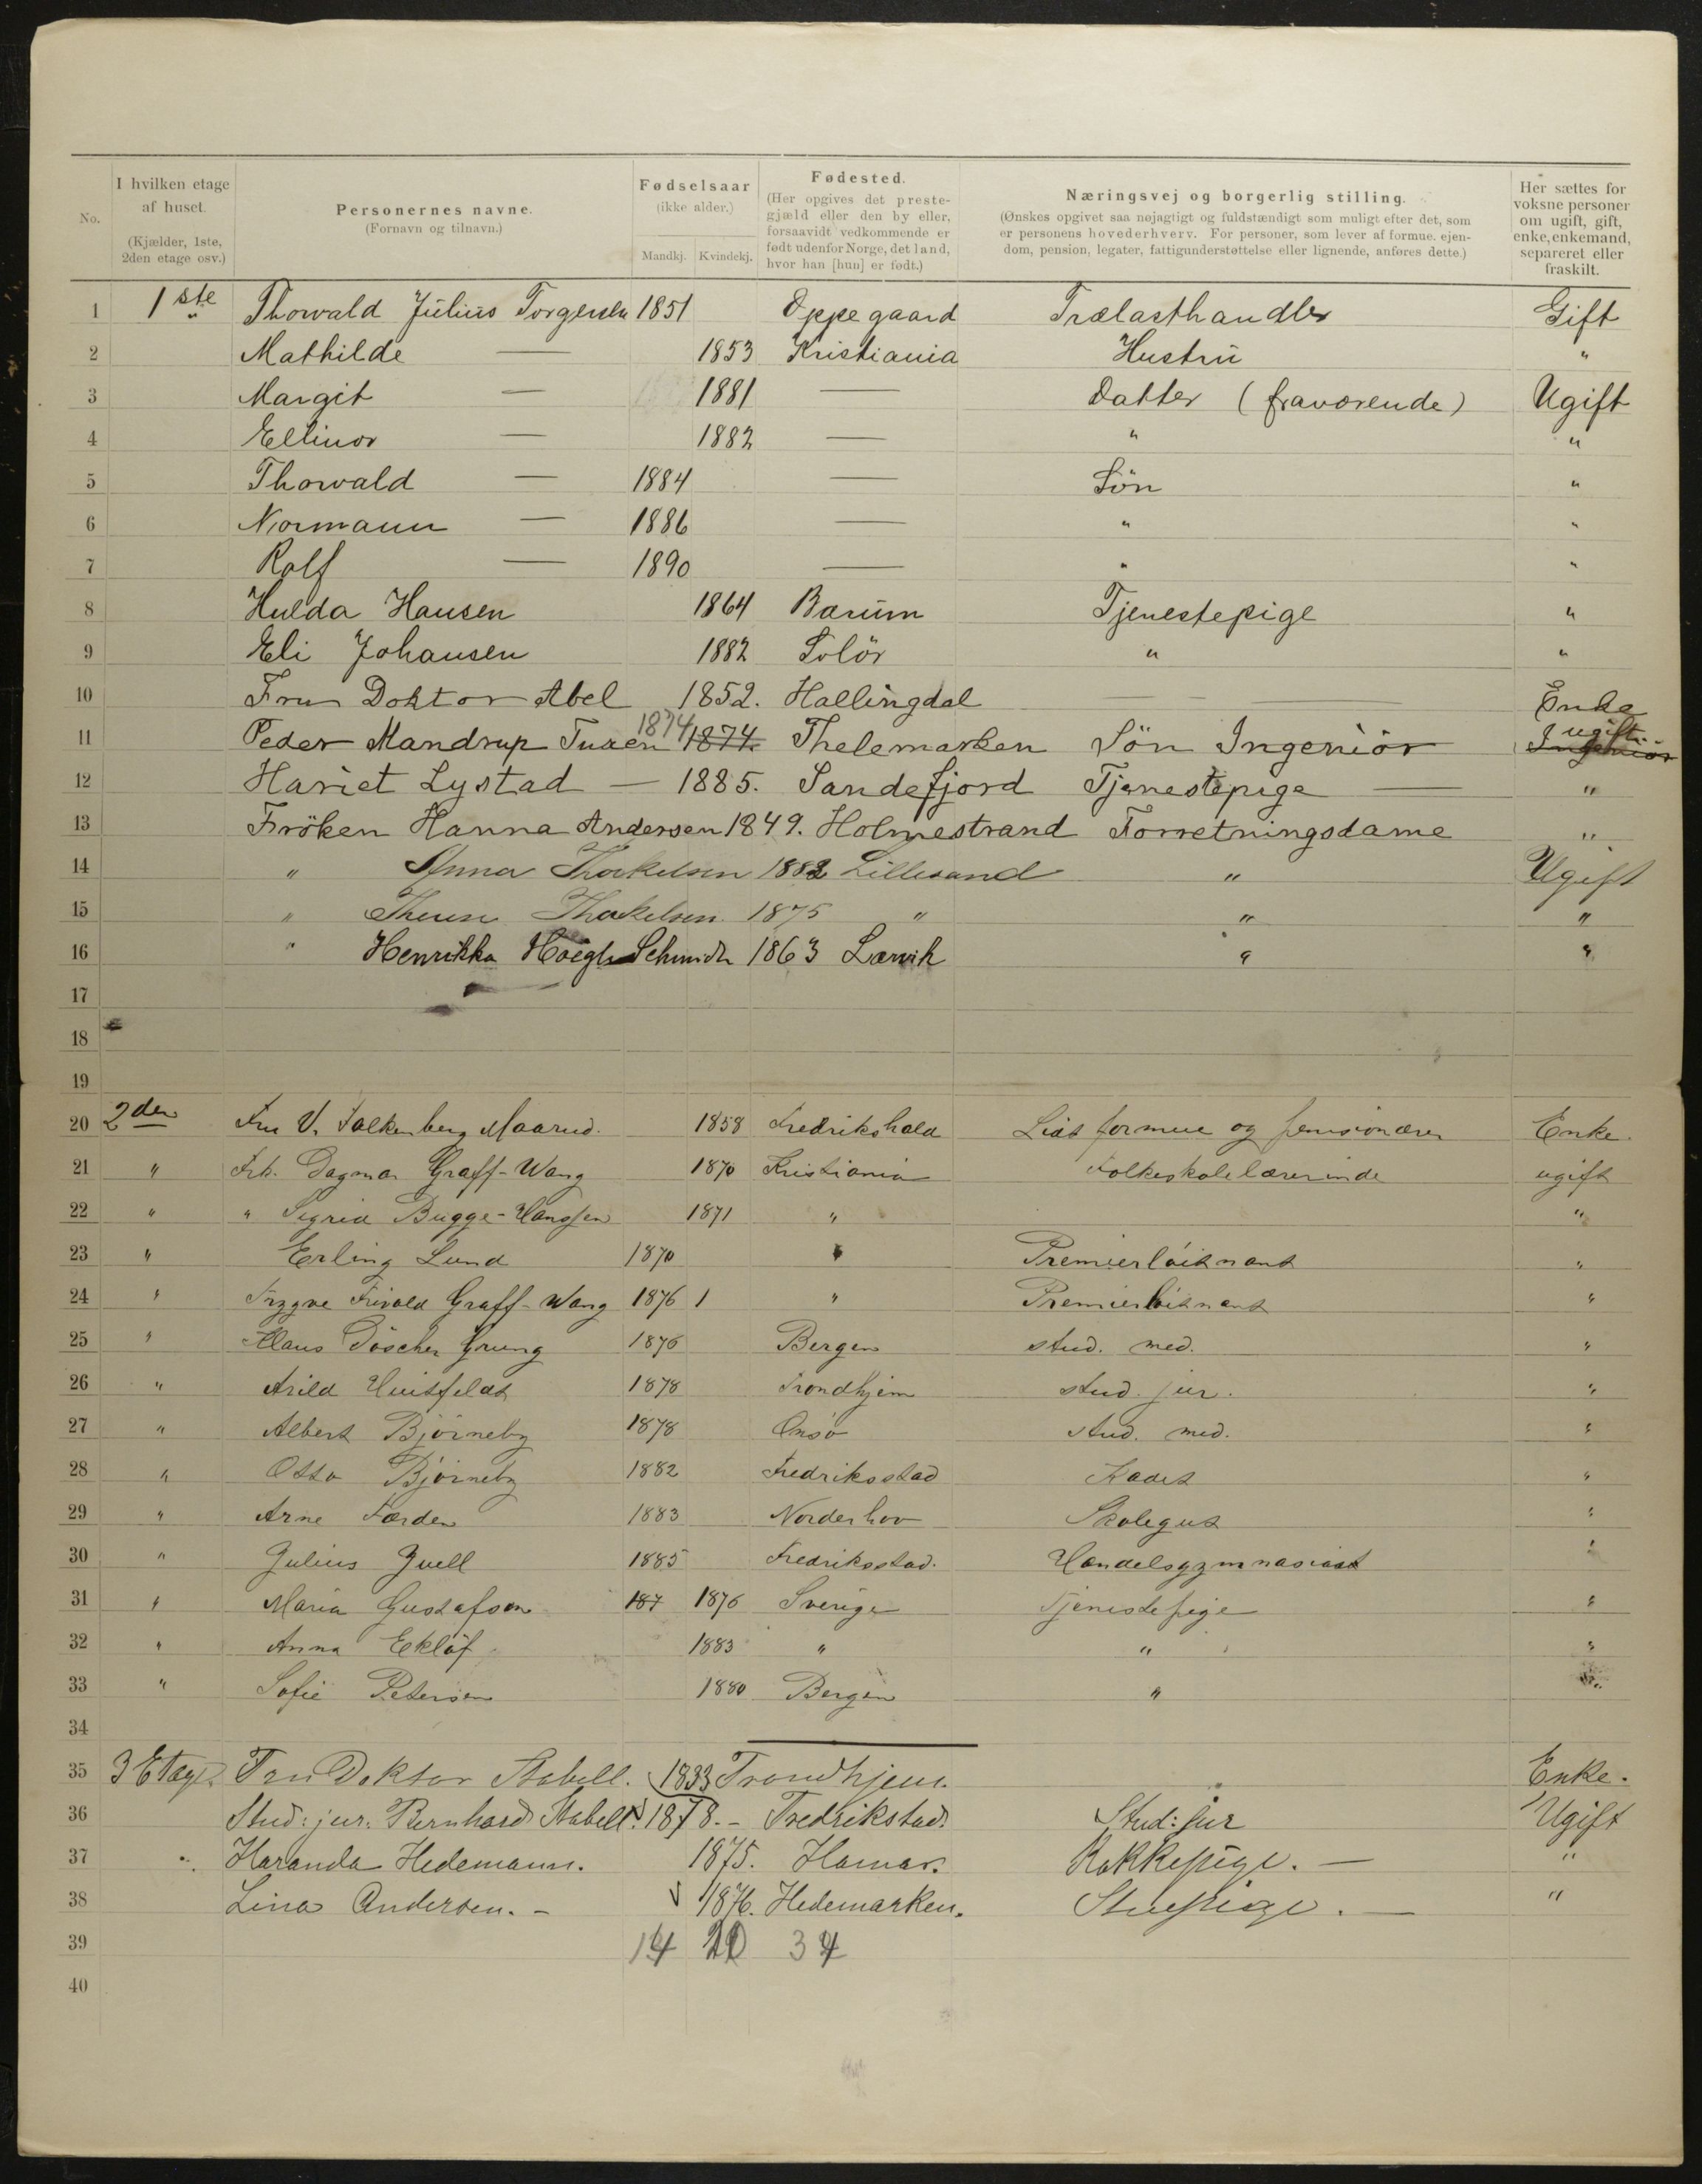 No.
I hvilken etage af huset. (Kjælder, 1ste, 2den etage osv.)
Personernes navne. (Fornavn og tilnavn.)
Fødselsaar (ikke alder.) Mandkj. Kvindekj.
Fødested. (Her opgives det prestegjæld eller den by eller, forsaavidt vedkommende er født udenfor Norge, det land, hvor han [hun] er født.)
Næringsvej og borgerlig stilling. (Ønskes opgivet saa nøjagtigt og fuldstændigt som muligt efter det, som er personens hovederhverv. For personer, som lever af formue, ejendom, pension, legater, fattigunderstøttelse eller lignende, anføres dette.)
Her sættes for voksne personer om ugift, gift, enke, enkemand, separeret eller fraskilt.
1 1ste Thorvald Julius Torgersen 1851 Oppegaard Trælasthandler Gift
2 Mathilde — 1853 Kristiania Hustru "
3 Margit — 1881 — Datter (fraværende) Ugift
4 Ellinor — 1882 — " "
5 Thorvald — 1884 — Sön "
6 Normann — 1886 — " "
7 Rolf — 1890 — " "
8 Hulda Hansen 1864 Bærum Tjenestepige "
9 Eli Johansen 1882 Solör " "
10 Fru Doktor Abel 1852. Hallingdal — — Enke
11 Peder Mandrup Tuxen 1874 1874. Thelemarken Sön Ingeniör ugift Ingeniör
12 Hariet Lystad — 1885. Sandefjord Tjenestepige — "
13 Fröken Hanna Andersen 1849. Holmestrand Forretningsdame "
14 " Anna Thorkelsen 1882 Lillesand " Ugift
15 " Thorkelsen 1875 " " "
16 " Henrikka Höegh Schmidt 1863 Larvik " "
17
18
19
20 2den Fru V. Falkenberg Maarud. 1858 Fredrikshald Lidt formue og pensionærer Enke.
21 " Frk. Dagmar Graff-Wang 1870 Kristiania Folkeskolelærerinde ugift
22 " " Sigrid Bugge-Hanssen 1871 " "
23 " Erling Lund 1870 " Premierløitnant "
24 " Trygve Graff-Wang 1876 1 " Premierløitnant "
25 " Claus Döscher Grung 1876 Bergen stud. med. "
26 " Arild Huitfeldt 1878 Trondhjem stud. jur. "
27 " Albert Bjørneby 1878 Onsø stud. med. "
28 " Otto Bjørneby 1882 Fredriksstad Kadet "
29 " Arne Færden 1883 Norderhov Skolegut "
30 " Julius Juell 1885 Fredriksstad. Handelsgymnasiast "
31 " Maria Gustafson 187 1876 Sverige Tjenestepige "
32 " Anna Eklöf 1883 " " "
33 " Sofie Petersen 1880 Bergen "
34
35 3 Etage Fru Doktor Stabell. 1833 Trondhjem. Enke.
36 Stud: jur. Bernhard Stabell. 1878. - Fredrikstad. Stud: jur Ugift
37 " Haranda Hedemann. 1875. Hamar. Kokkepige. — "
38 Lina Andersen. - 1876. Hedemarken. Stuepige. — "
39 14 20 34
40